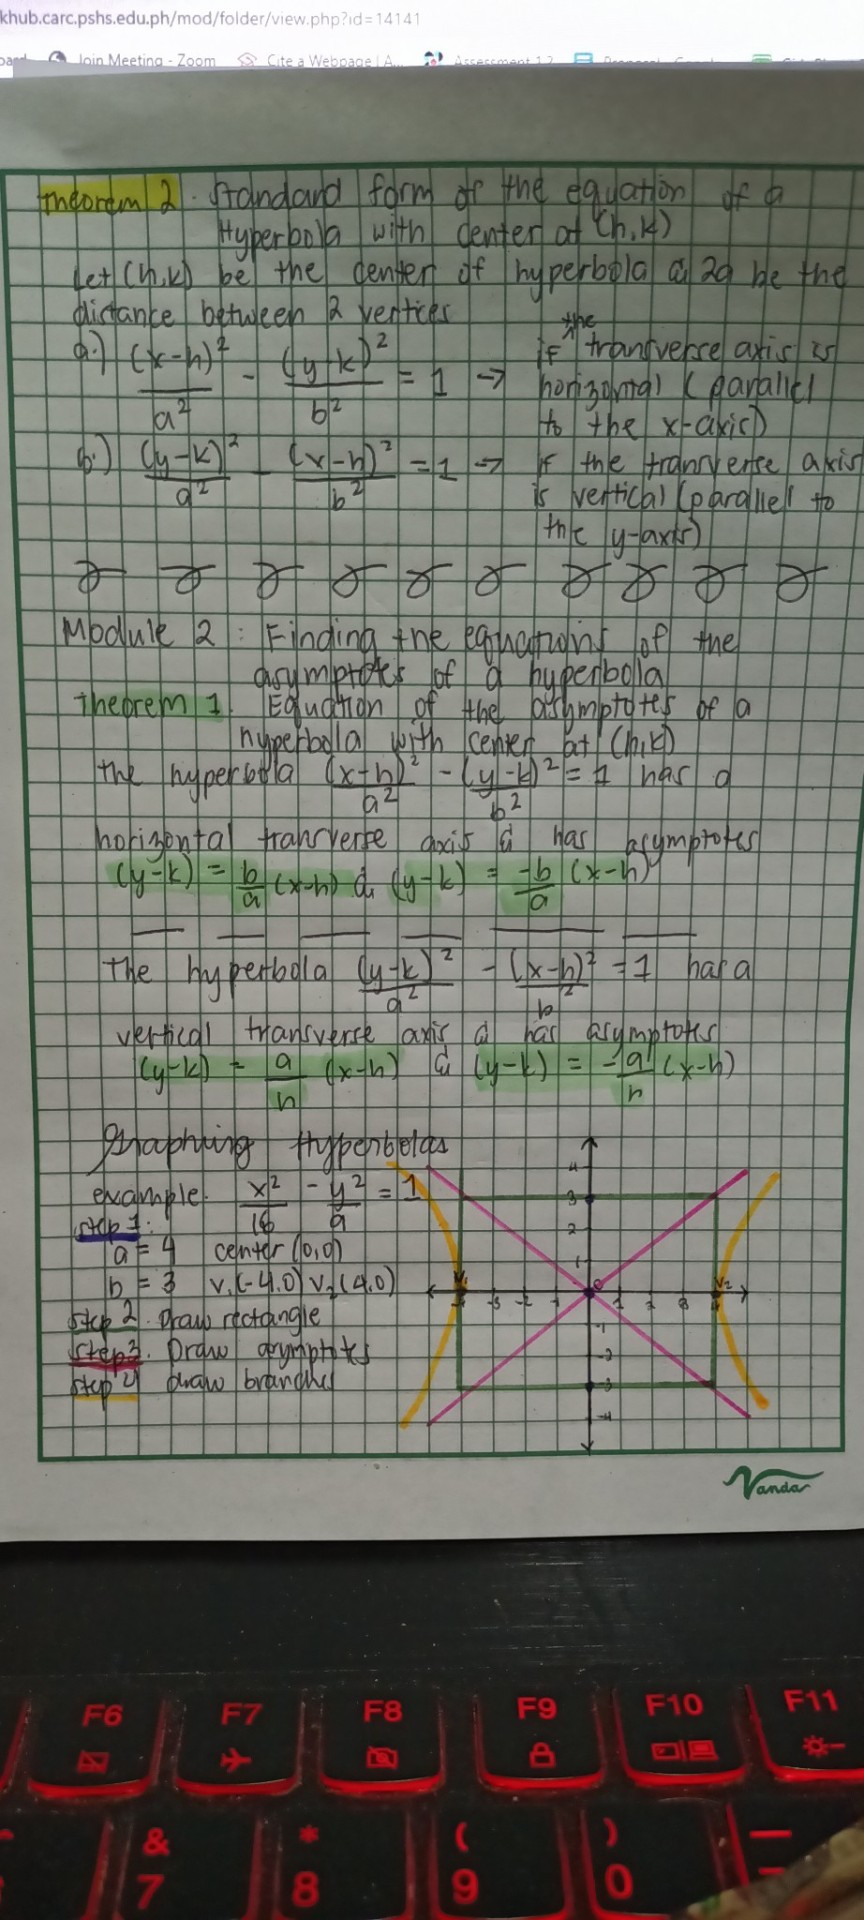 khub.carc.pshs.edu.ph/mod/folder/view.php?id=14141
Join Meeting - Zoom Cite a Webpage | A... Assessment 1.2
Theorem 2. Standard form of the equation of a
Hyperbola with center at (h,k)
Let (h,k) be the center of hyperbola & 2a be the
distance between 2 vertices
a.) (x-h)²/a² - (y-k)²/b² = 1 → if the transverse axis is
horizontal (parallel
to the x-axis)
b.) (y-k)²/a² - (x-h)²/b² = 1 → if the transverse axis
is vertical (parallel to
the y-axis)
Module 2 : Finding the equations of the
asymptotes of a hyperbola
Theorem 1. Equation of the asymptotes of a
hyperbola with center at (h,k)
the hyperbola (x-h)²/a² - (y-k)²/b² = 1 has a
horizontal transverse axis & has asymptotes
(y-k) = b/a (x-h) & (y-k) = -b/a (x-h)
the hyperbola (y-k)²/a² - (x-h)²/b² = 1 has a
vertical transverse axis & has asymptotes
(y-k) = a/h (x-h) & (y-k) = -a/h (x-h)
Graphing Hyperbolas
example. x²/16 - y²/9 = 1
step 1:
a = 4 center (0,0)
b = 3 V₁(-4,0) V₂(4,0)
step 2. Draw rectangle
step 3. Draw asymptotes
step 4 draw branches
4
3
2
1
V₁ -3 -2 -1 0 1 2 3 V₂
-1
-2
-3
-4
Vanda
F6 F7 F8 F9 F10 F11
& * ( )
7 8 9 0